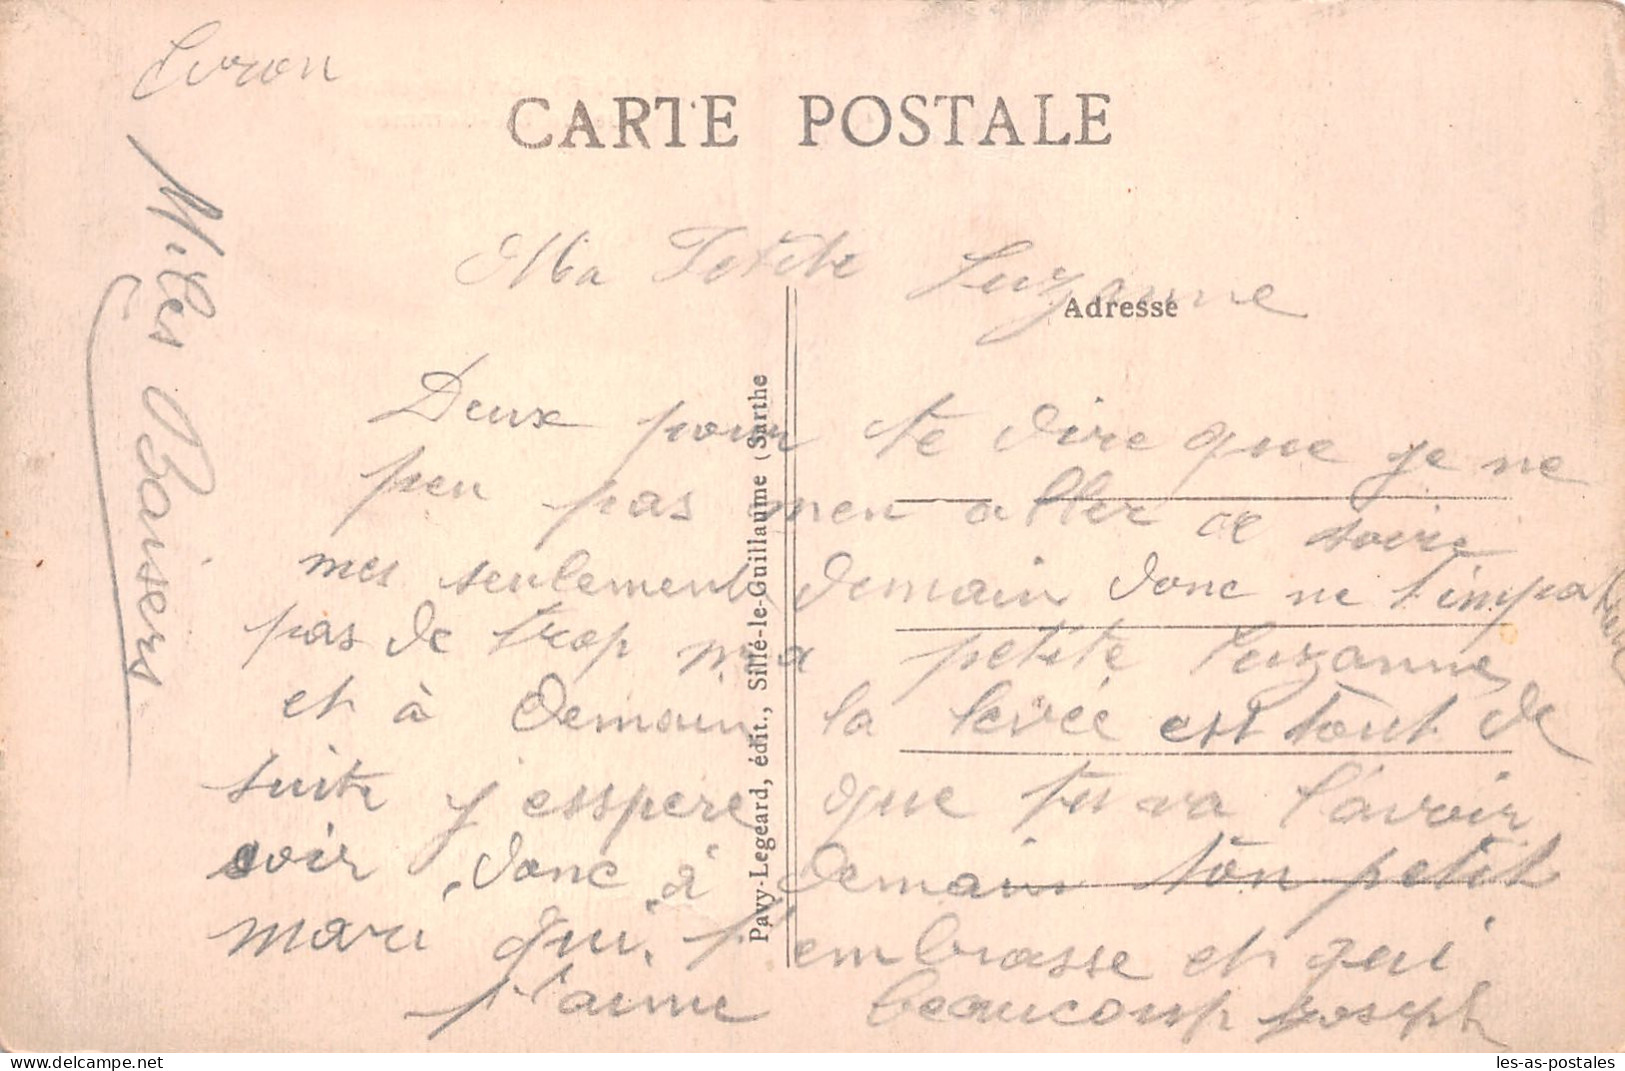 Evron
CARTE POSTALE
Milles Baisers
Ma Petite Suzanne
Adresse
Deux pour te dire que je ne
peu pas men aller ce soire
mes seulement demain donc ne t'impatien
pas de trop ma petite Suzanne
et à demain la levée est tout de
suite j'esspere que tu va l'avoir
soir, donc à demain ton petit
mari qui t'embrasse et qui
t'aime beaucoup Joseph
Pavy-Legeard, édit., Sillé-le-Guillaume (Sarthe
les-as-postales